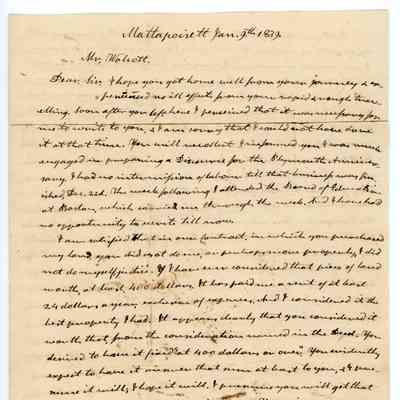 Mattapoisett Jan. 9th 1839.
Mr. Wolcott.
Dear Sir, I hope you got home well from your journey & ex-
perienced no ill effects from your rapid & rough trav-
elling. Soon after you left here I perceived that it was necessary for
me to write to you, & I am sorry that I could not have done
it at that time. You will recollect I informed you I was much
engaged in preparing a Discourse for the Plymouth Anniver-
sary. I had no intermission of labour till that business was fin-
ished, Dec. 22d. The week following I attended the Board of Education
at Boston, which carried me through the week. And I have had
no opportunity to write till now.
I am satisfied that in our Contract, in which you purchased
my land you did not do me, or perhaps more properly, I did
not do myself justice. I have ever considered that piece of land
worth, at least, 400 dollars. It has paid me a rent of at least
24 dollars a year, exclusive of expenses. And I considered it the
best property I had. It appears clearly that you considered it
worth that from the consideration named in the Deed. You
desired to have it fixed at 400 dollars or over. You evidently
expect to have it in over that sum at least to you, &
it will, & I hope it will. I presume you will get that